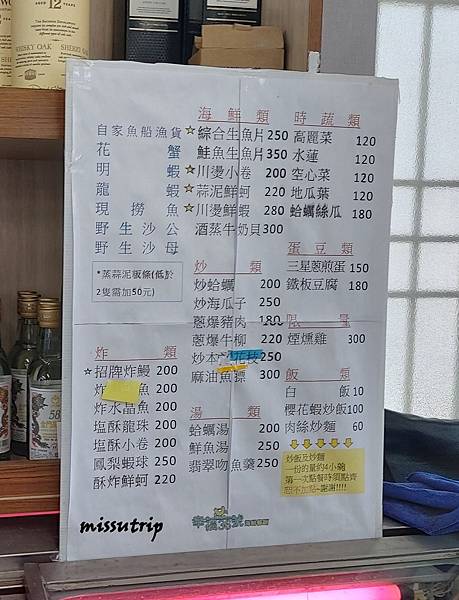 12
WHISKY OAK
SHERRY OAK
自家魚船漁貨
花蟹
明蝦
龍蝦
現撈魚
野生沙公
野生沙母
*蒸蒜泥粄條(低於
2隻需加50元)
炸類
☆招牌炸鰻 200
魚 200
炸水晶魚 200
塩酥龍珠 200
塩酥小卷 200
鳳梨蝦球 250
酥炸鮮蚵 220
海鮮類
☆綜合生魚片 250
鮭魚生魚片 350
☆川燙小卷 200
☆蒜泥鮮蚵 220
☆川燙鮮蝦 280
酒蒸牛奶貝 300
炒類
炒蛤蠣 200
炒海瓜子 250
蔥爆豬肉 180
蔥爆牛柳 220
炒本港花枝 250
麻油魚鏢 300
湯類
蛤蠣湯 200
鮮魚湯 250
翡翠吻魚羹 250
時蔬類
高麗菜 120
水蓮 120
空心菜 120
地瓜葉 120
蛤蠣絲瓜 180
蛋豆類
三星蔥煎蛋 150
鐵板豆腐 180
限量
煙燻雞 300
飯類
白飯 10
櫻花蝦炒飯 100
肉絲炒麵 60
炒飯及炒麵
一份的量約4小碗
第一次點餐時須點齊
恕不加點~謝謝!!!!
missutrip
58